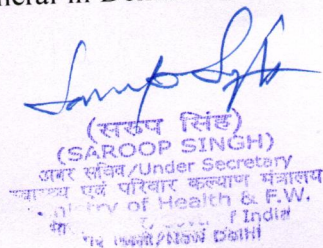 neral in Del
(सरुप सिंह)
(SAROOP SINGH)
अवर सचिव/Under Secretary
स्वास्थ्य एवं परिवार कल्याण मंत्रालय
nistry of Health & F.W.
f India
New Delhi